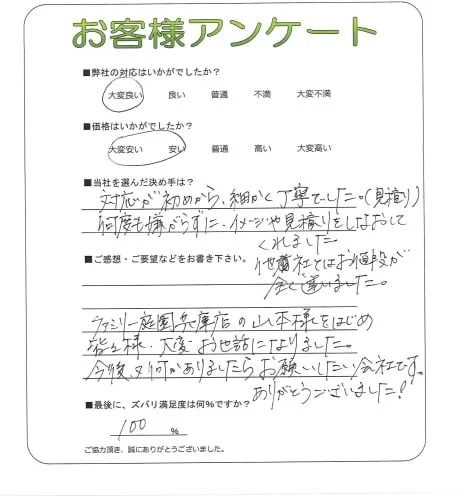 お客様アンケート
■弊社の対応はいかがでしたか?
大変良い 良い 普通 不満 大変不満
■価格はいかがでしたか?
大変安い 安い 普通 高い 大変高い
■当社を選んだ決め手は?
対応が初めから、細かく丁寧でした。(見積り)
何度も嫌がらずに、イメージや見積りをしなおして
くれました
他社とはお値段が
全く違いました。
■ご感想・ご要望などをお書き下さい。
ファミリー庭園兵庫店の山本様をはじめ
皆々様、大変お世話になりました。
今後又何かありましたらお願いしたい会社です。
ありがとうございました!
■最後に、ズバリ満足度は何%ですか?
100 %
ご協力頂き、誠にありがとうございました。